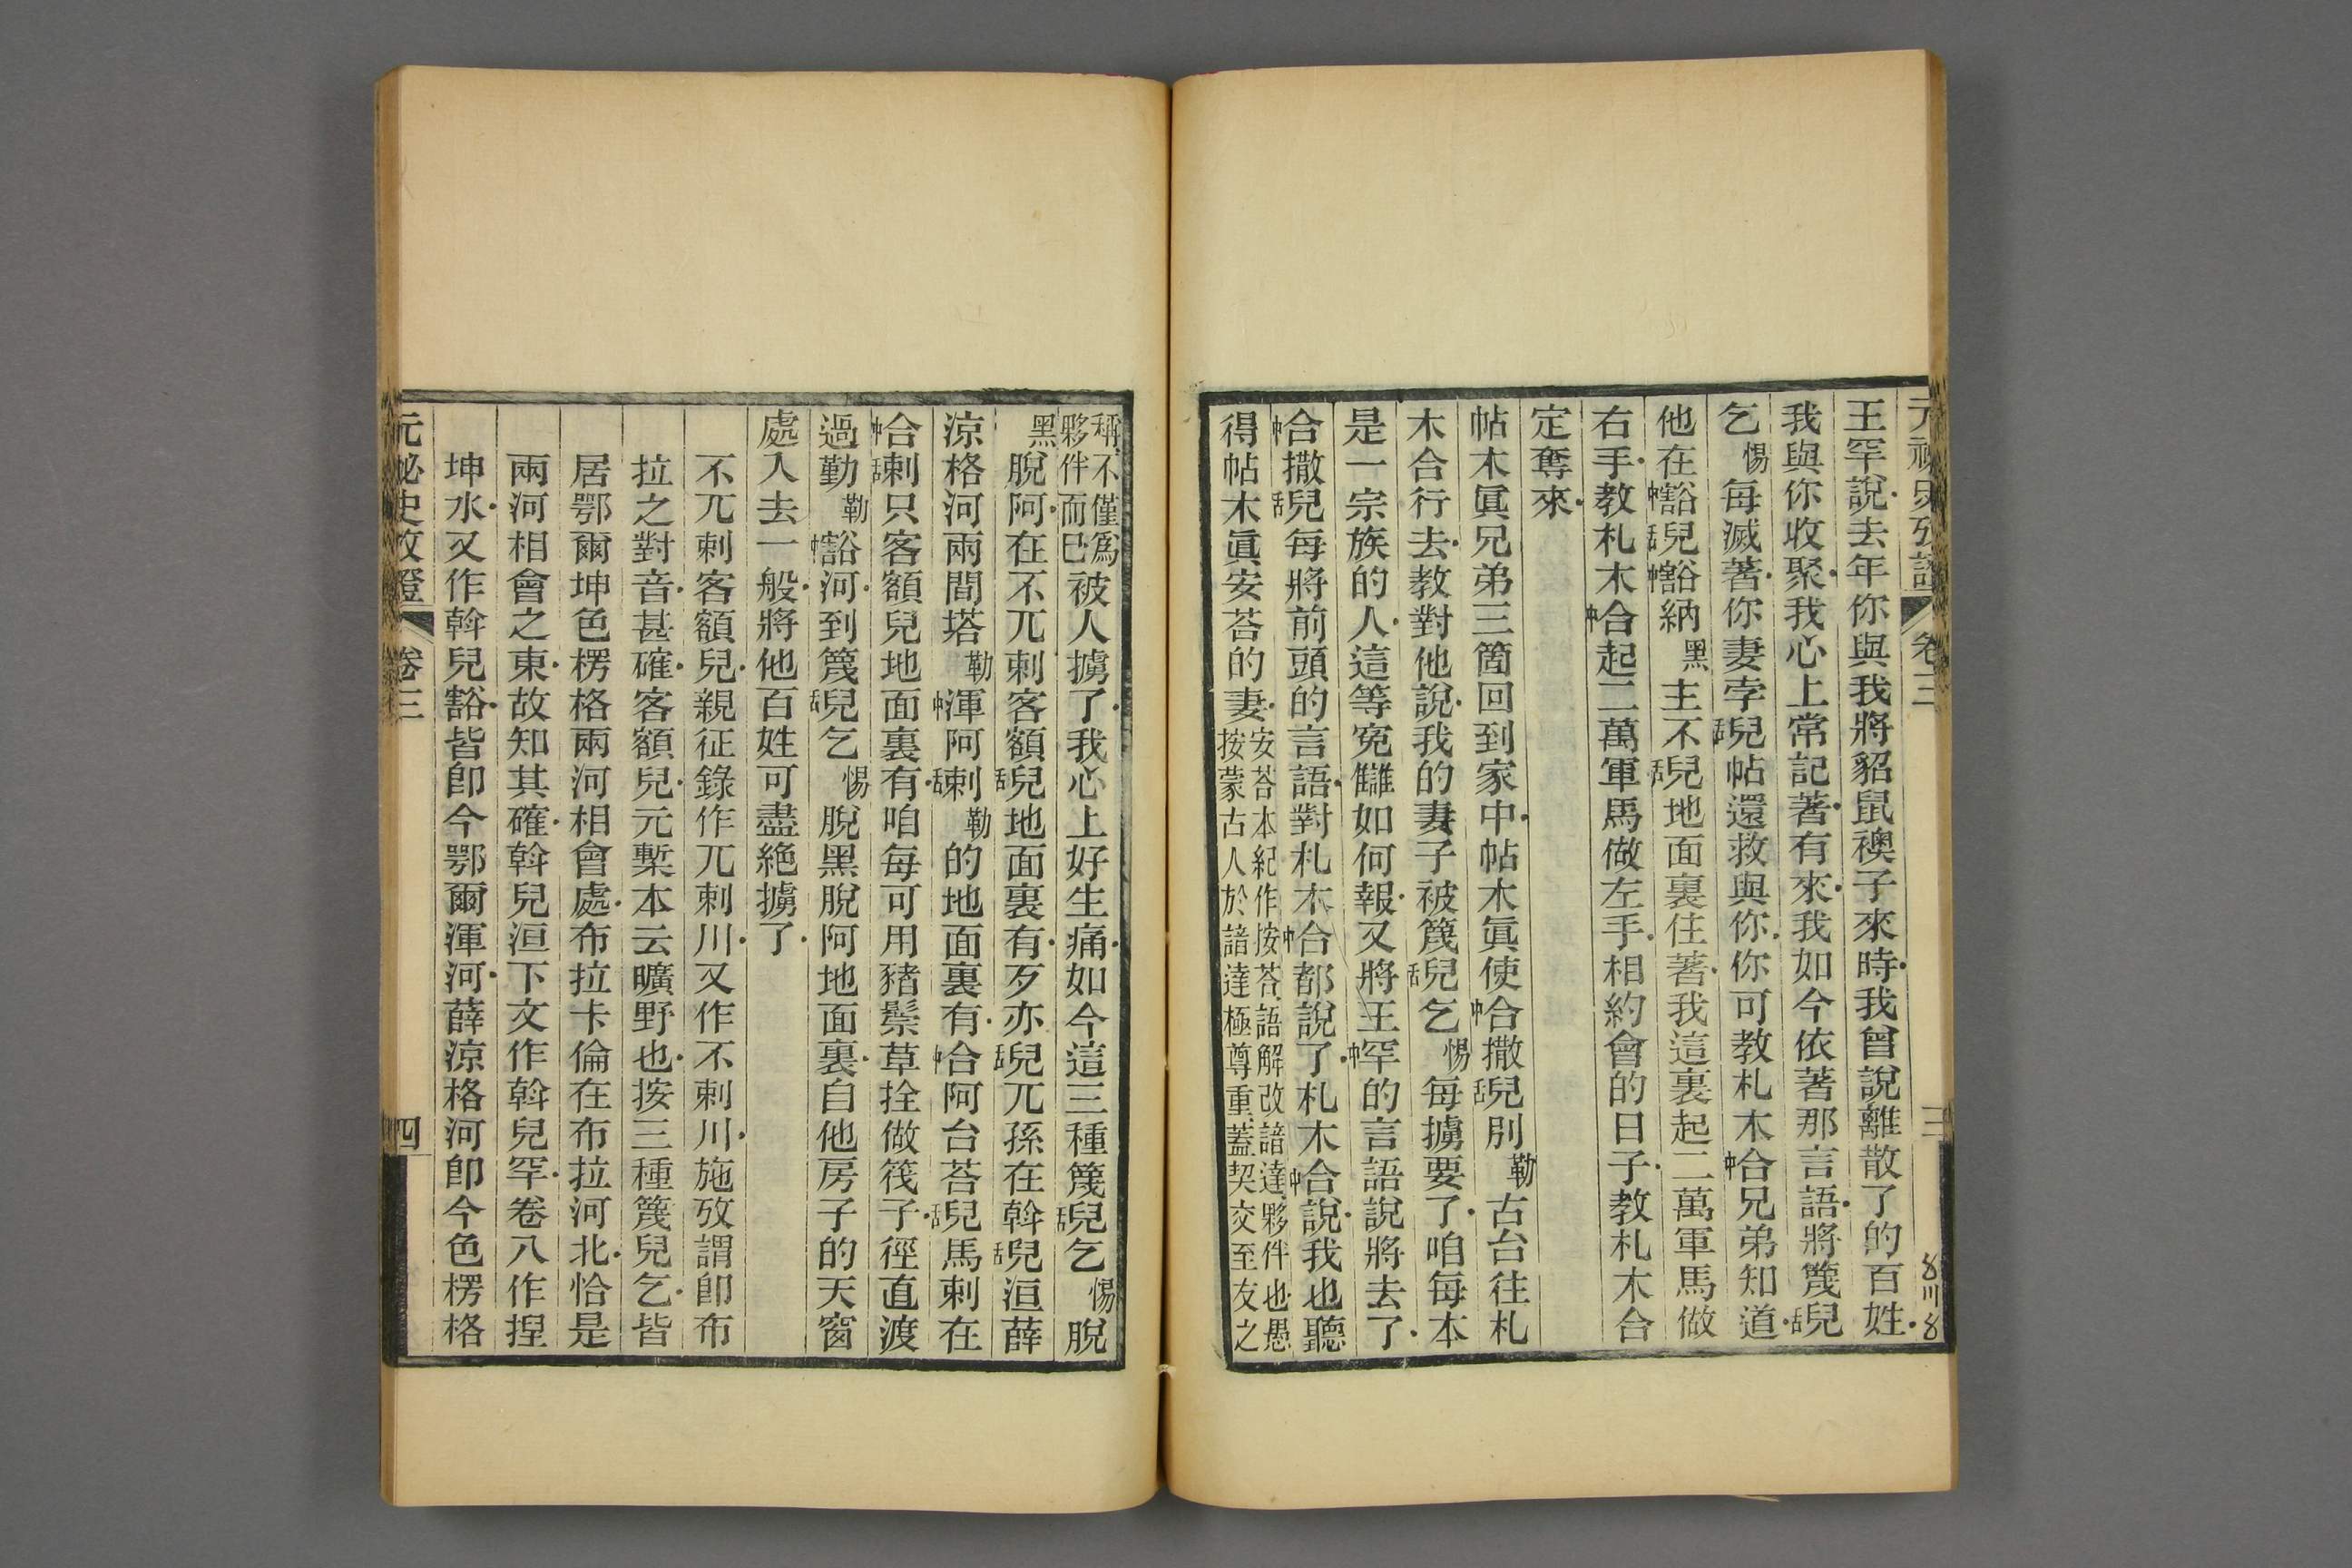 元秘史攷證 卷三 三
王罕說去年你與我將貂鼠襖子來時我曾說離散了的百姓
我與你收聚我心上常記著有來我如今依著那言語將篾舌兒
乞惕每滅著你妻孛舌兒帖還救與你你可教札木中合兄弟知道
他在中豁舌兒中豁納黑主不舌兒地面裏住著我這裏起二萬軍馬做
右手教札木中合起二萬軍馬做左手相約會的日子教札木合
定奪來
帖木眞兄弟三箇回到家中帖木眞使中合撒舌兒別勒古台往札
木合行去教對他說我的妻子被篾舌兒乞惕每擄要了咱每本
是一宗族的人這等冤讎如何報又將王中罕的言語說將去了
中合撒舌兒每將前頭的言語對札木中合都說了札木中合說我也聽
得帖木眞安荅的妻安荅本紀作按荅語解改諳達夥伴也愚
按蒙古人於諳達極尊重蓋契交至友之
稱不僅爲
夥伴而已被人擄了我心上好生痛如今這三種篾舌兒乞惕脫
黑脫阿在不兀剌客額舌兒地面裏有歹亦舌兒兀孫在斡舌兒洹薛
涼格河兩間塔勒中渾阿舌剌勒的地面裏有中合阿台荅舌兒馬剌在
中合舌剌只客額兒地面裏有咱每可用豬鬃草拴做筏子徑直渡
過勤勒中豁河到篾舌兒乞惕脫黑脫阿地面裏自他房子的天窗
處入去一般將他百姓可盡絕擄了
不兀剌客額兒親征錄作兀剌川又作不剌川施攷謂卽布
拉之對音甚確客額兒元槧本云曠野也按三種篾兒乞皆
居鄂爾坤色楞格兩河相會處布拉卡倫在布拉河北恰是
兩河相會之東故知其確斡兒洹下文作斡兒罕卷八作揑
坤水又作斡兒豁皆卽今鄂爾渾河薛涼格河卽今色楞格
元祕史攷證 卷三 四